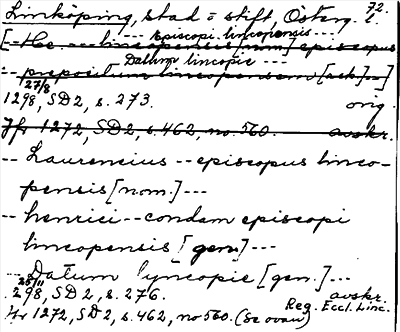 Linköping, stad o stift, Österg. l. 72.
--- Episcopi lincopensis ---
[-- He --- lincopensis [nom] episcopus
Datum lincopie ---
-- prepositum lincopensem [ack] --]
27/8
1298, SD 2, s. 273. orig.
Jfr 1272, SD 2, s. 462, no 560. avskr.
-- Laurencius -- episcopus linco-
pensis [nom.] ---
-- henrici -- condam episcopi
lincopensis [gen.] ---
-- Datum lyncopie [gen.] ---
28/11 avskr.
1298, SD 2, s. 276. Reg. Eccl. Linc.
Jfr 1272, SD 2, s. 462, no 560. (se ovan)